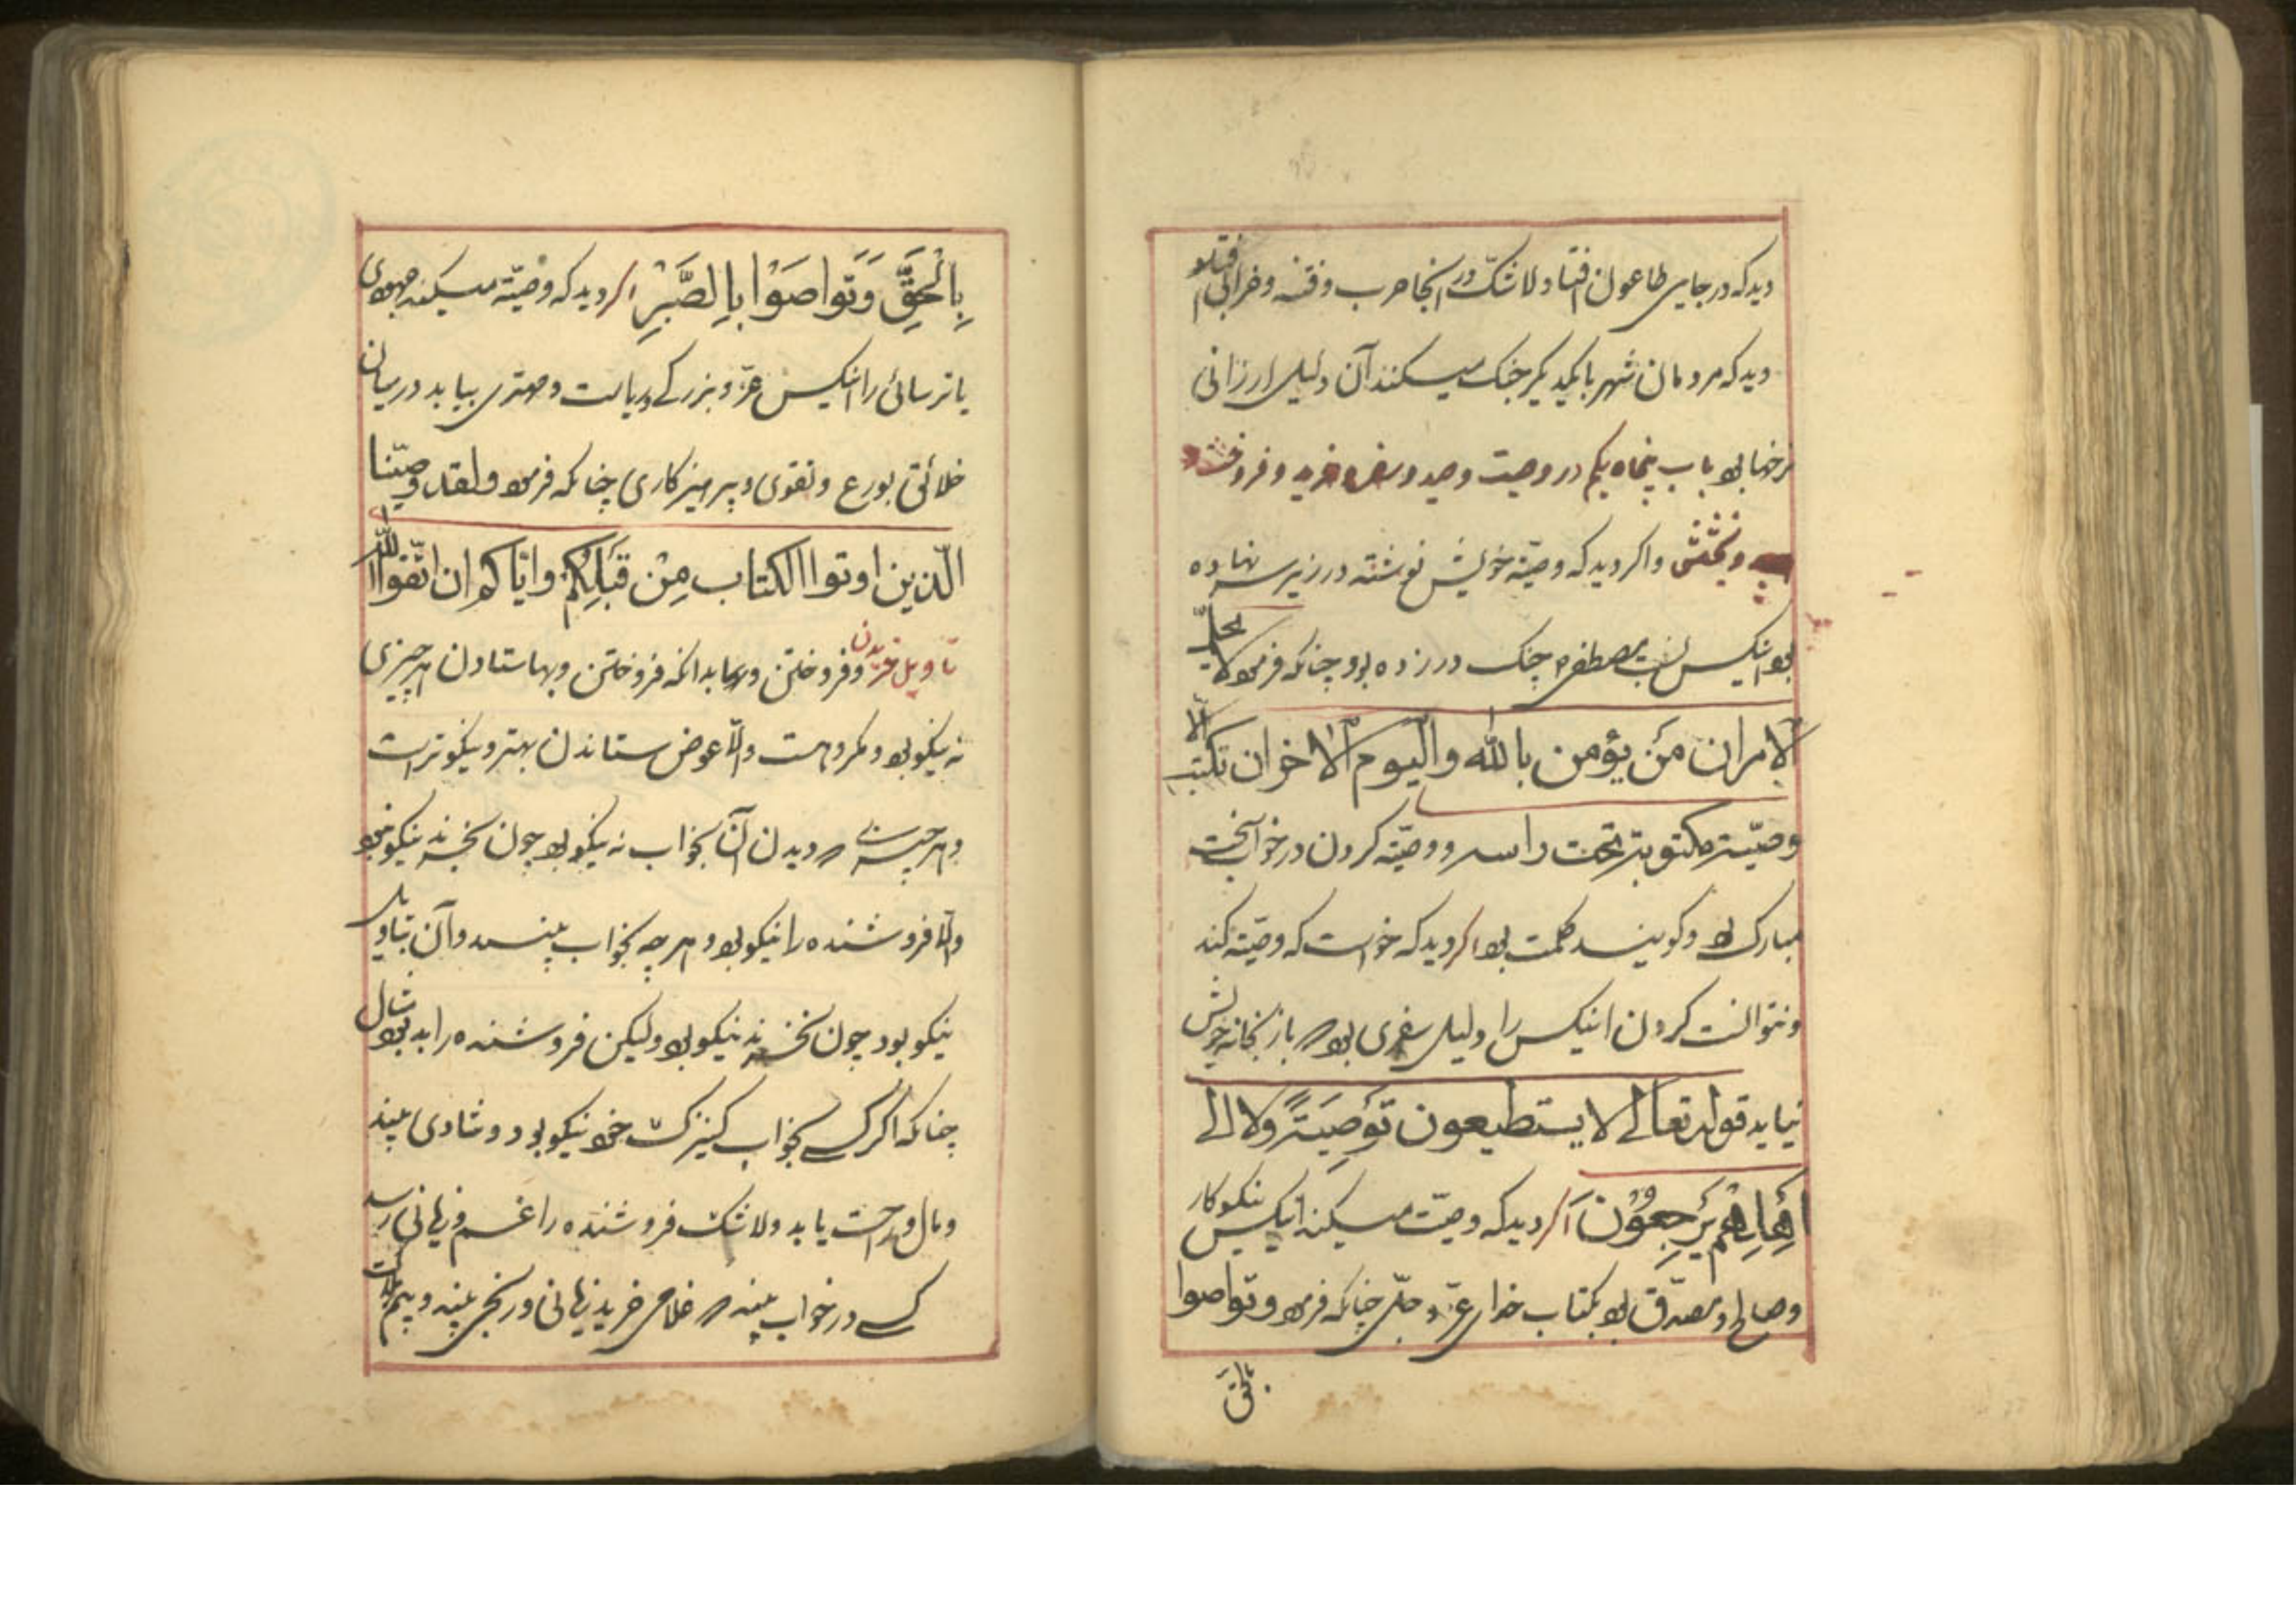 دید که در جایی طاعون افتاد لا شک در انجا حرب و فتنه و خرابی افتد و اگر
دید که مردمان شهر با یکدیگر جنک میکنند آن دلیل ارزانی
نرخها بود باب پنجاه یکم در وصیت و صید و خرید و فروخت
و بخشش واکر دید که وصیّته خویش نوشته در زیر سر نهاده
بود انکس بسنت مصطفی چنک در زده بود چنانکه فرمود لا یحلّ
لامران من یؤمن بالله والیوم الاخر ان یکتب الّا
وصیّته مکتوبته تحت راسه و وصیّته کردن در خواب سخت
مبارک بود و کویند کلمت بود اکر دید که خواست که وصیّته کند
ونتوانست کردن انیکس را دلیل سفری بود که باز بخانه خویش
نیاید قوله تعالی لا یستطیعون توصیتً ولا الی
اهلهم یرجعون اکر دید که وصیّت میکند انیکس نیکوکار
وصالح و مصدّق بود بکتاب خدای عزّ و جلّ چنانکه فرمود وتواصوا
بالحق
بِالْحَقِّ وَتَواصَوْا بِالصَّبْرِ اکر دید که وصیّته میکند جهودی
یا ترسائی را انیکس عزّ و بزرکی و ریاست و مهتری بیابد در میان
خلائق بورع وتقوی و پرهیزکاری چنانکه فرمود ولقد وصّینا
الّذین اوتوا الکتاب مِنْ قَبْلِکُم وایّاکم ان اتّقوا الله
تاویل خریدن وفروختن وبدانکه فروختن وبها ستادن هر چیزی
نه نیکو بود و مکروهست والّا عوض ستاندن بهتر و نیکوتر است
و هر چیزی که دیدن آن بخواب نه نیکو بود چون بخرند نیکو نبود
والّا فروشنده را نیکو بود و هر چه بخواب بینند و آن بتاویل
نیکو بود چون بخرند نیکو بود ولیکن فروشنده را بد بود مثال
چنانکه اکر کسی بخواب کنیزک خرد نیکو بود و شادی بیند
ومال و راحت یابد ولا شک فروشنده را غم وزیانی رسد
کسی در خواب بیند که غلامی خرید زیانی و رنجی بیند و بیم